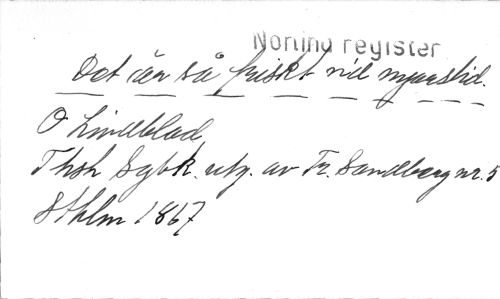 Norlind register
Det är så friskt vid myrstid.
O Lindblad
Thsh Sgbk. utg. av Fr. Sandberg nr. 5
Sthlm 1867